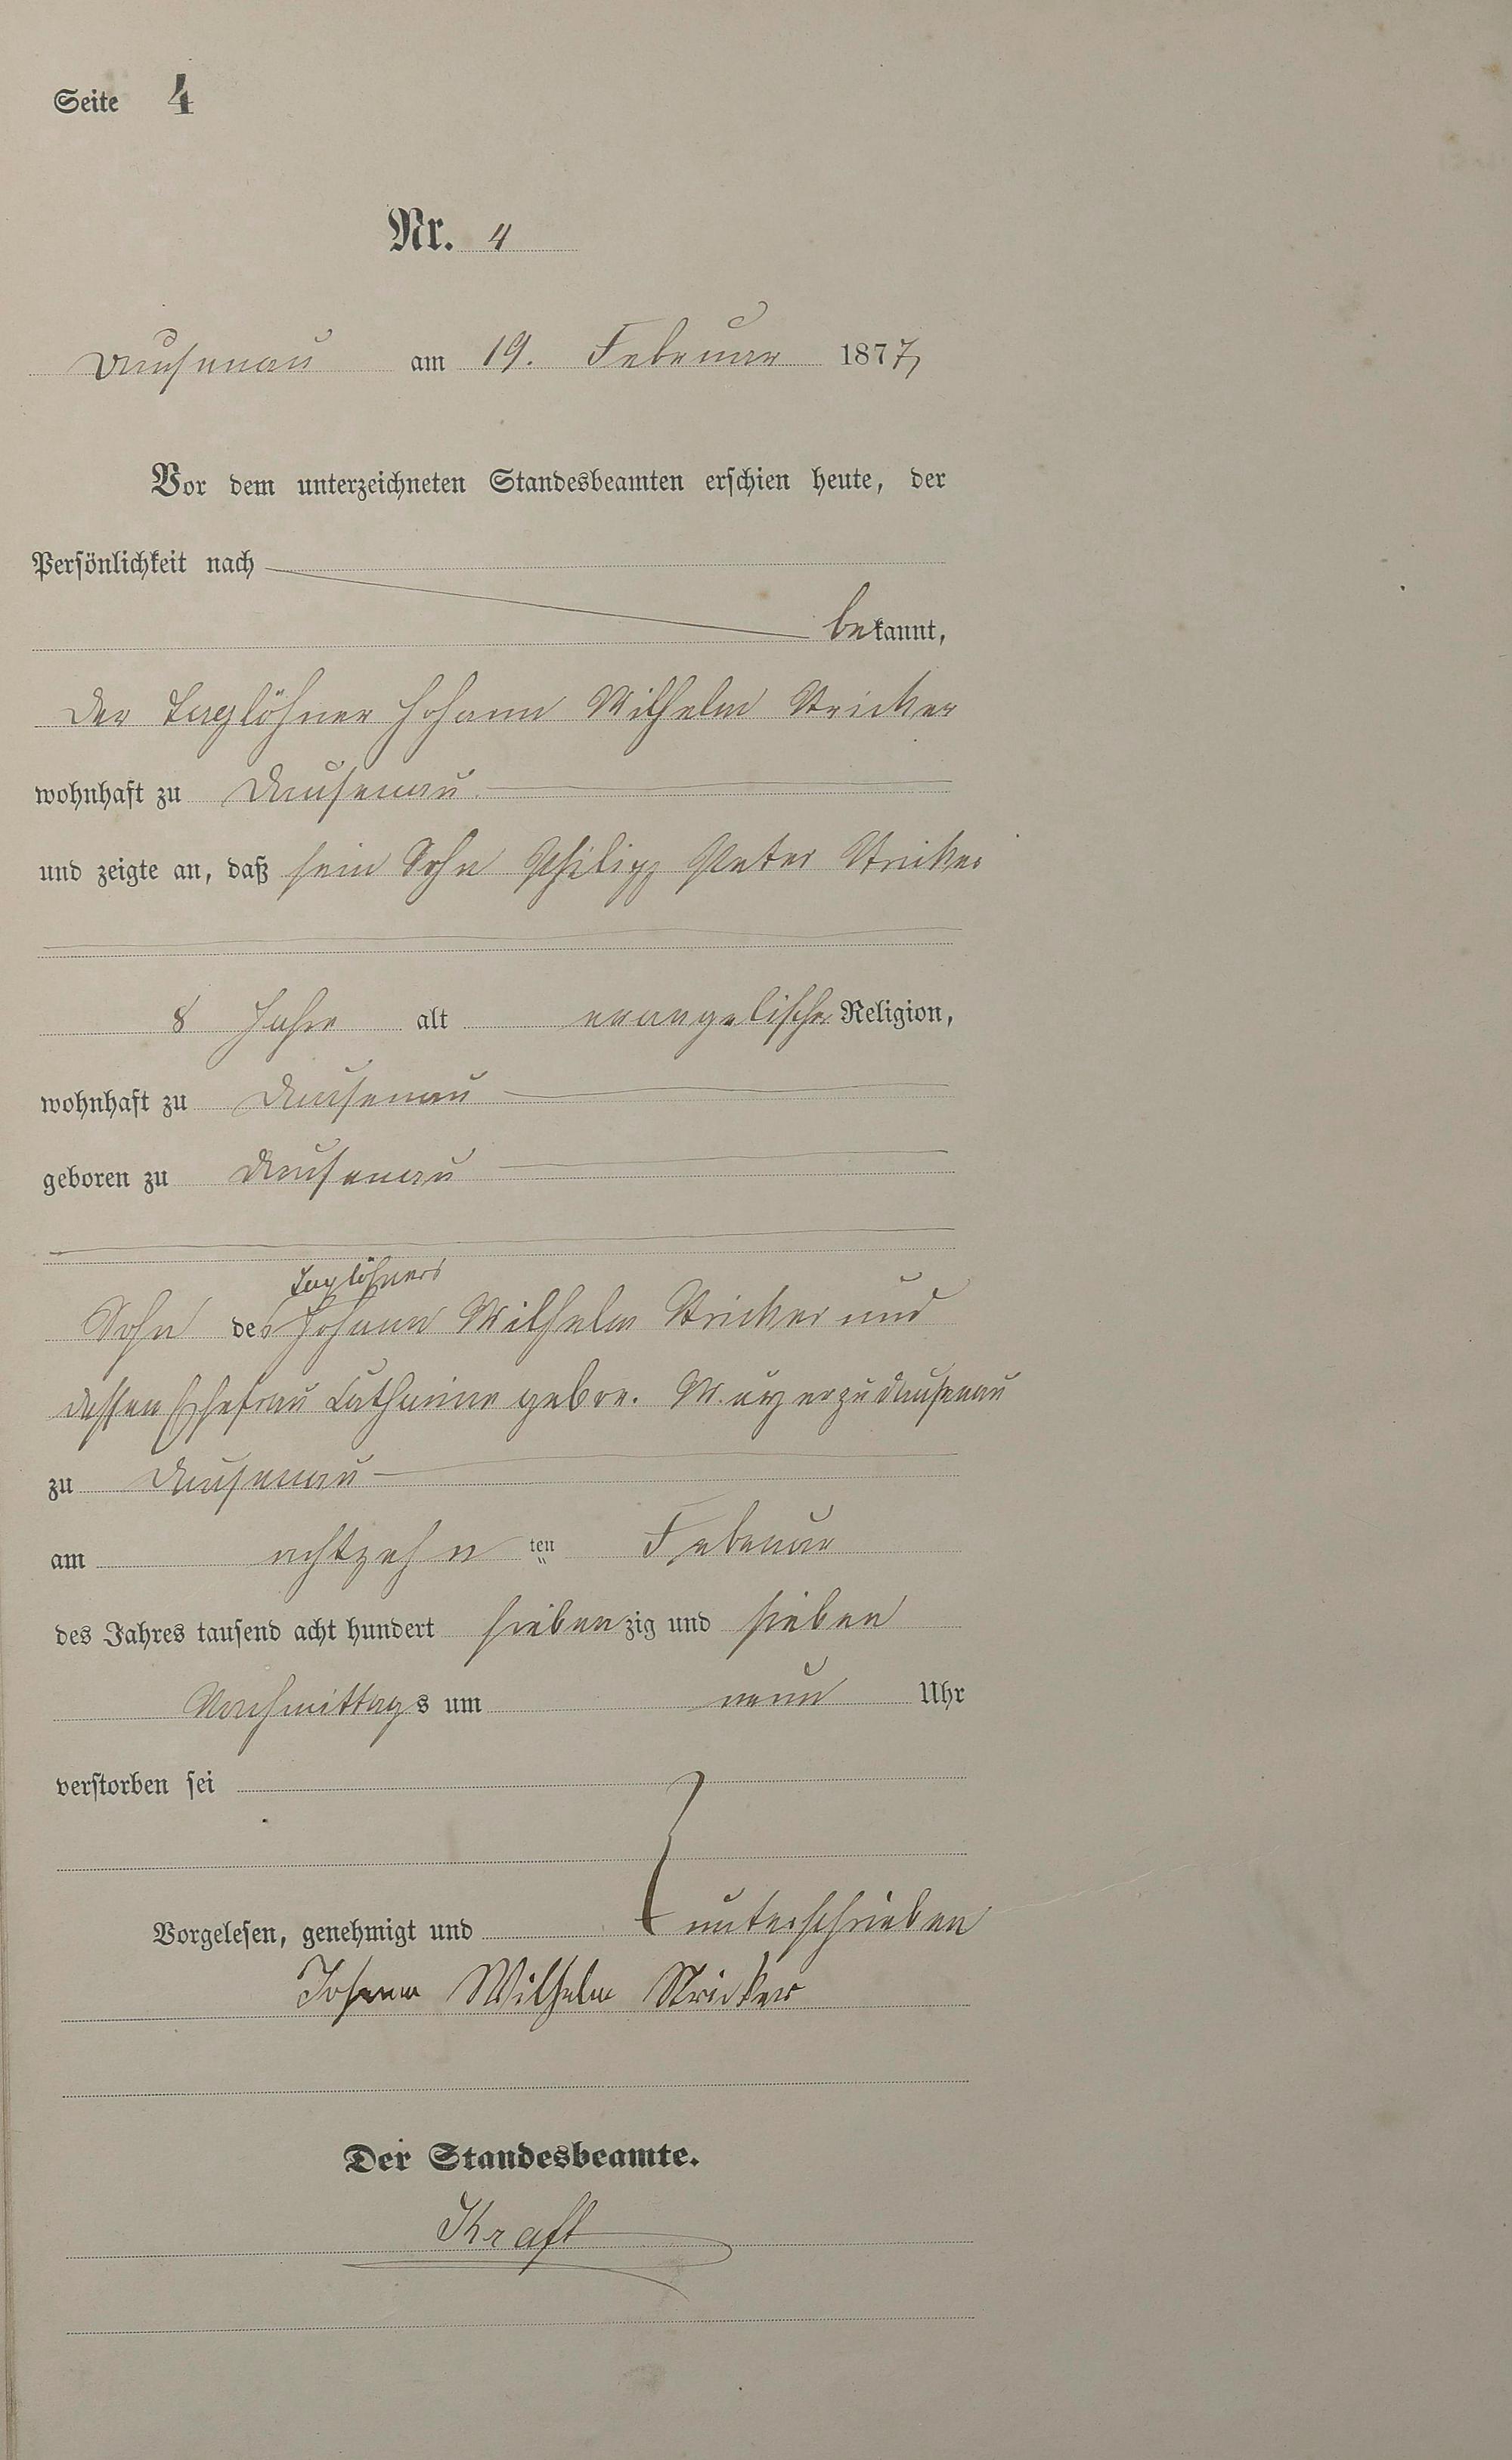 Seite 4
Nr. 4
Dausenau am 19. Februar 1877
Vor dem unterzeichneten Standesbeamten erschien heute, der
Persönlichkeit nach
bekannt,
der Taglöhner Johann Wilhelm Stricker
wohnhaft zu Dausenau
und zeigte an, daß sein Sohn Philipp Peter Striker
8 Jahre alt evangelischer Religion,
wohnhaft zu Dausenau
geboren zu Dausenau
Taglöhners
Sohn des Johann Wilhelm Stricker und
dessen Ehefrau Catharine gebor. zu Dausenau
zu Dausenau
am achtzehn ten Februar
des Jahres tausend acht hundert siebenzig und sieben
Nachmittags um neun Uhr
verstorben sei
Vorgelesen, genehmigt und unterschrieben
Johann Wilhelm Stricker
Der Standesbeamte.
Kraft